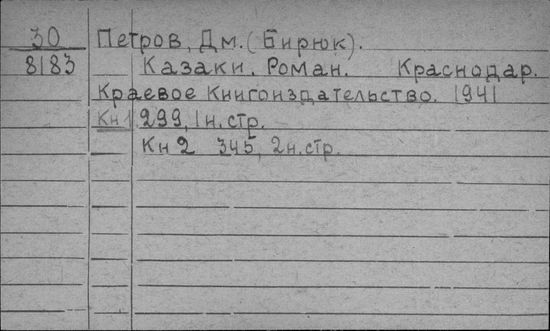 30 Петров, Дм. (Бирюк).
8183 Казаки. Роман. Краснодар.
Краевое Книгоиздательство. 1941
Кн 1 299, 1 н. стр.
Кн 2 345, 2 н. стр.